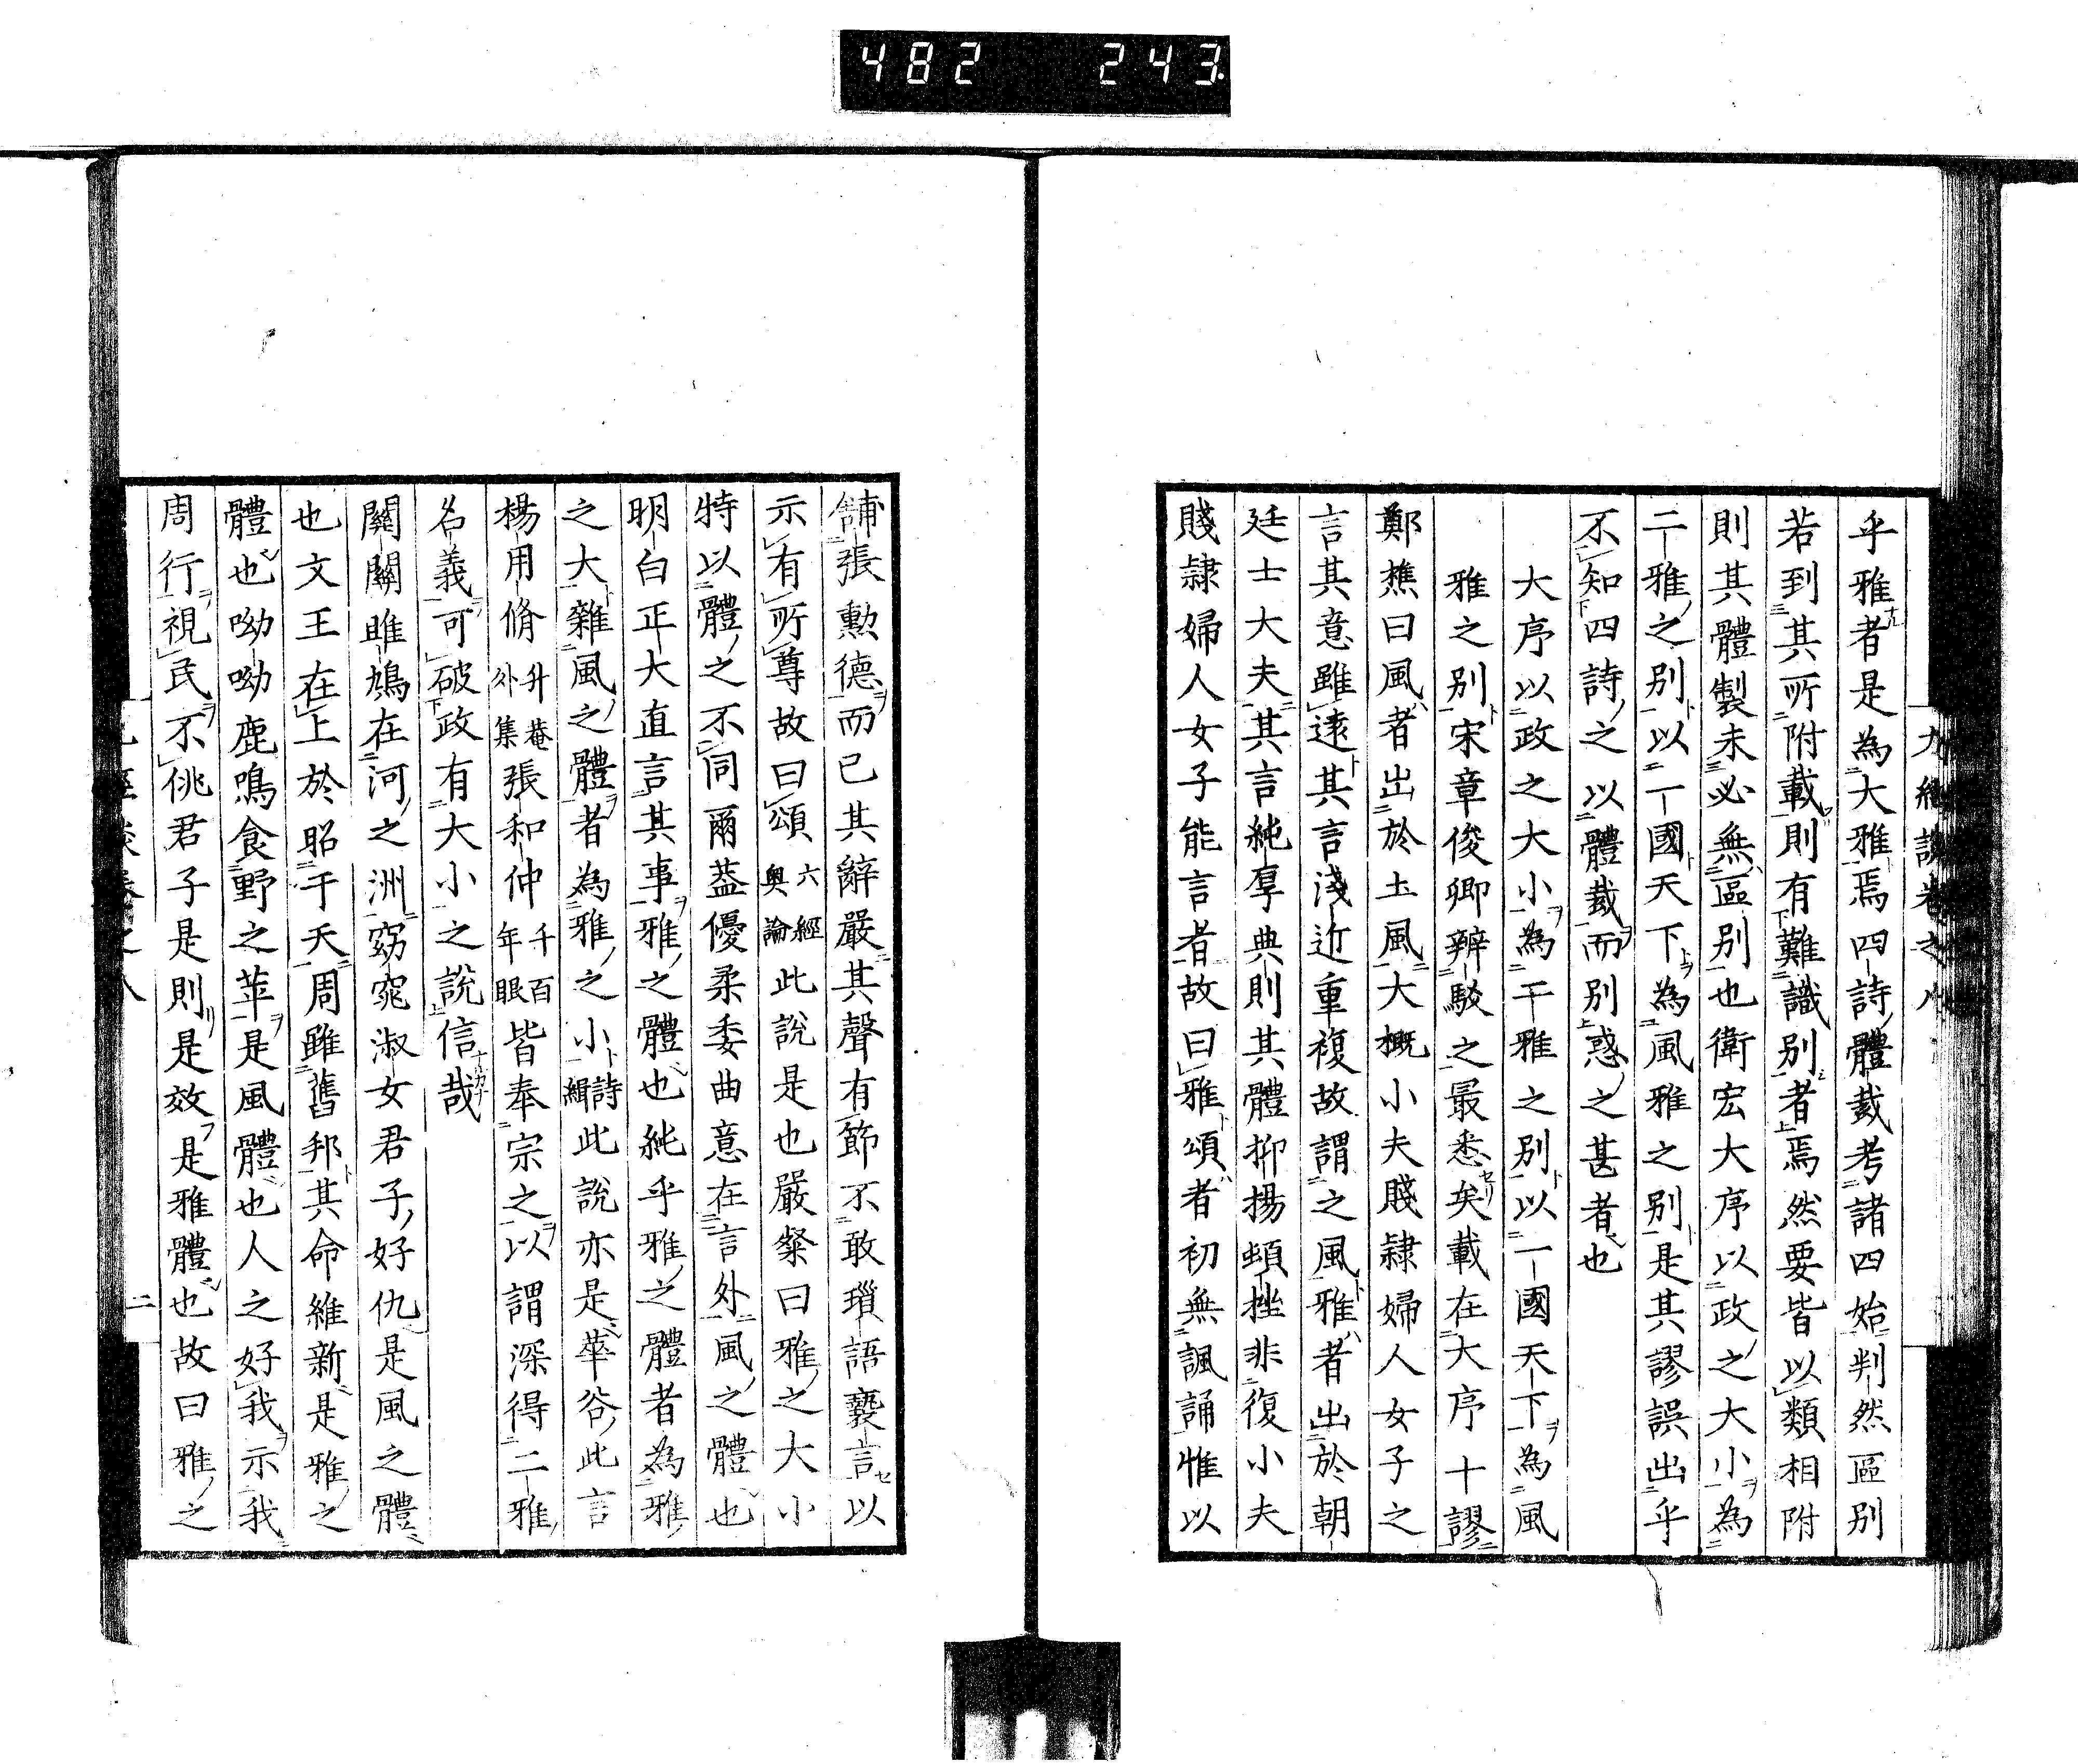 482 243
九經談卷之八
乎雅者是為大雅焉四詩體裁考諸四始判然區別
若到其所附載則有難識別者焉然要皆以類相附
則其體製未必無區别也衛宏大序以政之大小為
二雅之别以一國天下為風雅之别是其謬誤出乎
不知四詩之以體裁而别惑之甚者也
大序以政之大小為二雅之别以一國天下為風
雅之别宋章俊卿辨駁之最悉矣載在大序十謬
鄭樵曰風者出於土風大概小夫賤隷婦人女子之
言其意雖遠其言淺近重複故謂之風雅者出於朝
廷士大夫其言純厚典則其體抑揚頓挫非復小夫
賤隷婦人女子能言者故曰雅頌者初無諷誦惟以
舖張勲德而已其辭嚴其聲有節不敢瑣語褻言以
示有所尊故曰頌六經奧論此說是也嚴粲曰雅之大小
特以體之不同爾葢優柔委曲意在言外風之體也
明白正大直言其事雅之體也純乎雅之體者為雅
之大雜風之體者為雅之小詩緝此說亦是華谷此言
楊用脩升菴外集張和仲千百年眼皆奉宗之以謂深得二雅
名義可破政有大小之說信哉
關關雎鳩在河之洲窈窕淑女君子好仇是風之體
也文王在上於昭于天周雖舊邦其命維新是雅之
體也呦呦鹿鳴食野之苹是風體也人之好我示我
周行視民不佻君子是則是效是雅體也故曰雅之
二